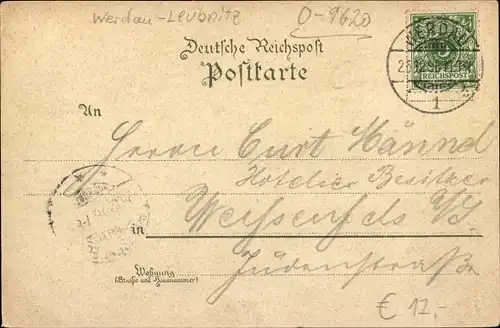 Werdau-Leubnitz
O-9620
Deutsche Reichspost
Postkarte
WERDAU
REICHSPOST
1
An
Herrn Curt Hännel
Hotelier Besitzer
Weissenfels
in
Judenstraße
Wohnung
(Straße und Hausnummer)
€ 12,-